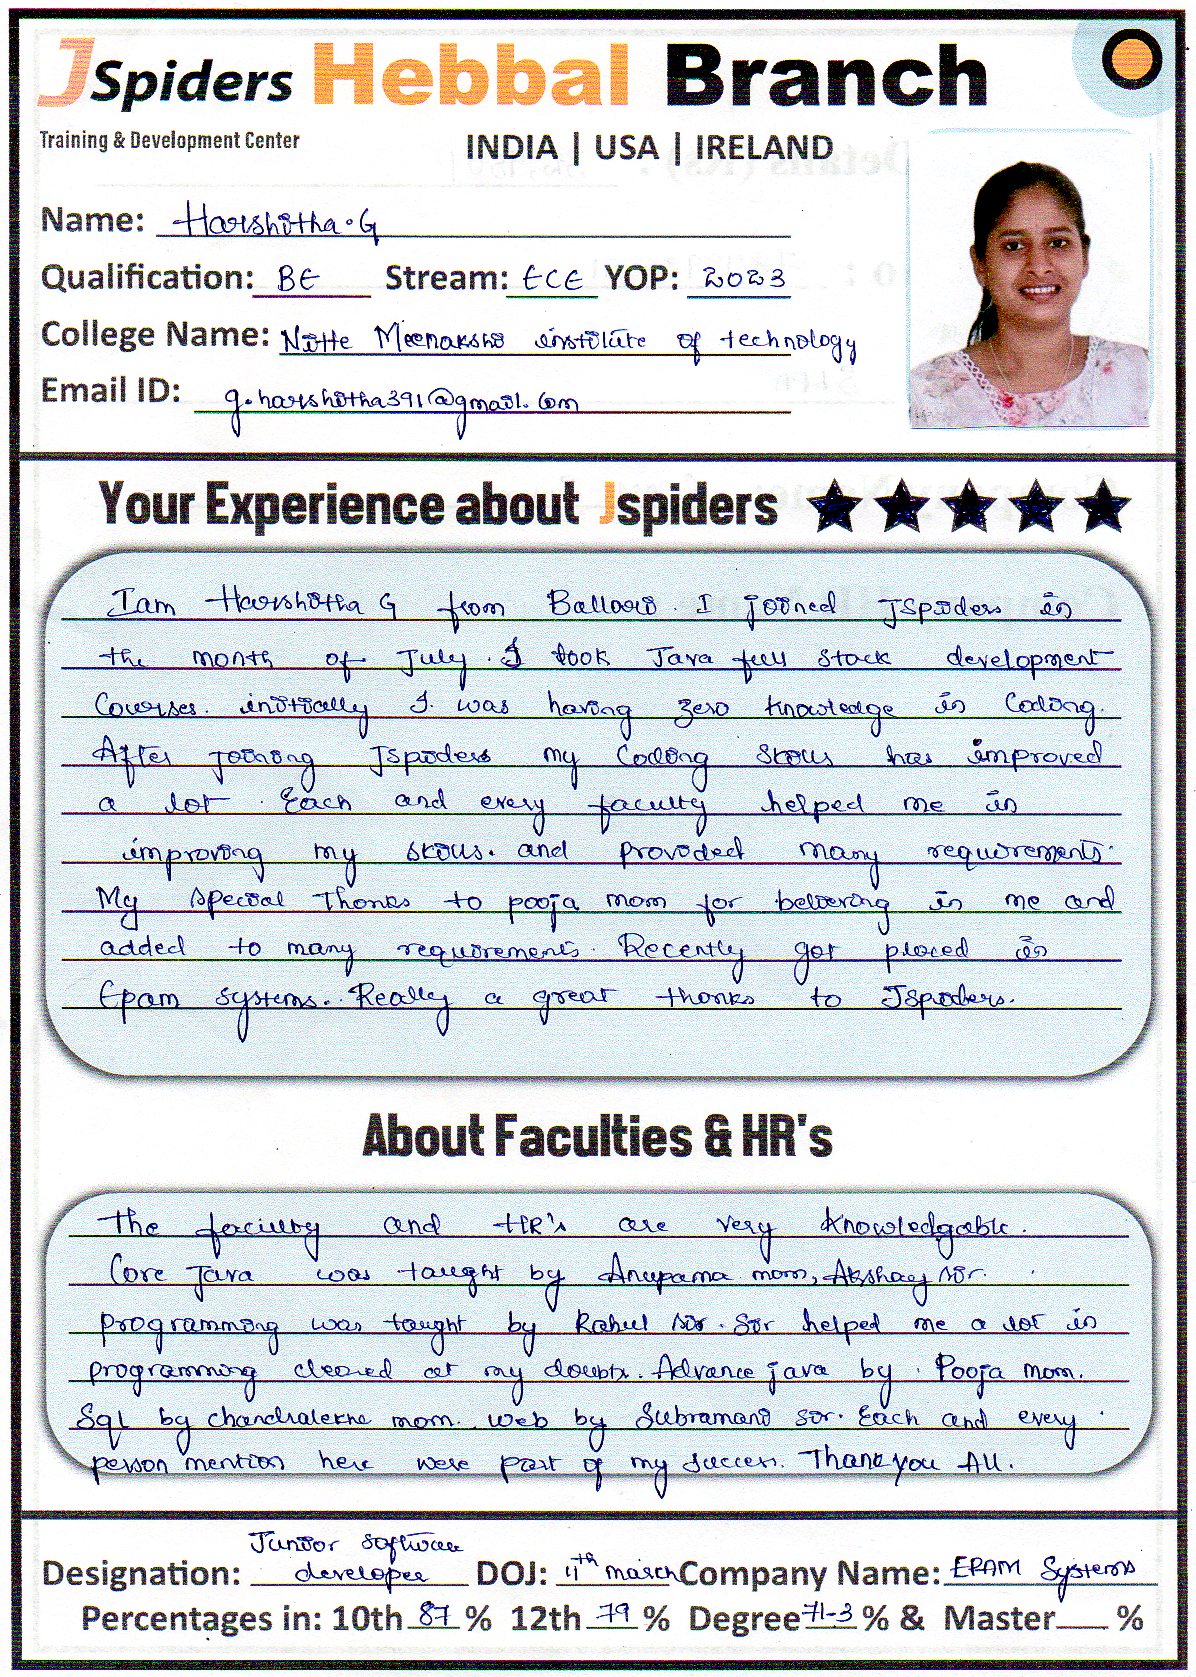 JSpiders Hebbal Branch
Training & Development Center
INDIA | USA | IRELAND
Name: Harshitha.G
Qualification: BE Stream: ECE YOP: 2023
College Name: Nitte Meenakshi institute of technology
Email ID: g.harshitha391@gmail.com
Your Experience about Jspiders
Iam Harshitha G from Ballari. I joined JSpiders in
the month of July. I took Java full stack development
Courses. initially I was having zero knowledge in Coding.
After joining JSpiders my Coding skills has improved
a lot. Each and every faculty helped me in
improving my skills. and provided many requirements.
My special Thanks to pooja mam for beliving in me and
added to many requirements. Recently got placed in
Epam systems.. Really a great thanks to JSpiders.
About Faculties & HR's
The faculty and HR's are very knowledgable.
Core Java was taught by Anupama mam, Akshay sir.
programming was taught by Rahul sir. Sir helped me a lot in
programming cleared all my doubts. Advance java by Pooja mam.
Sql by chandralekha mam. web by Subramani sir. Each and every
person mention here were part of my success. Thank you All.
Designation: Junior software developer DOJ: 11th march Company Name: EPAM Systems
Percentages in: 10th 87 % 12th 79 % Degree 71.3 % & Master %